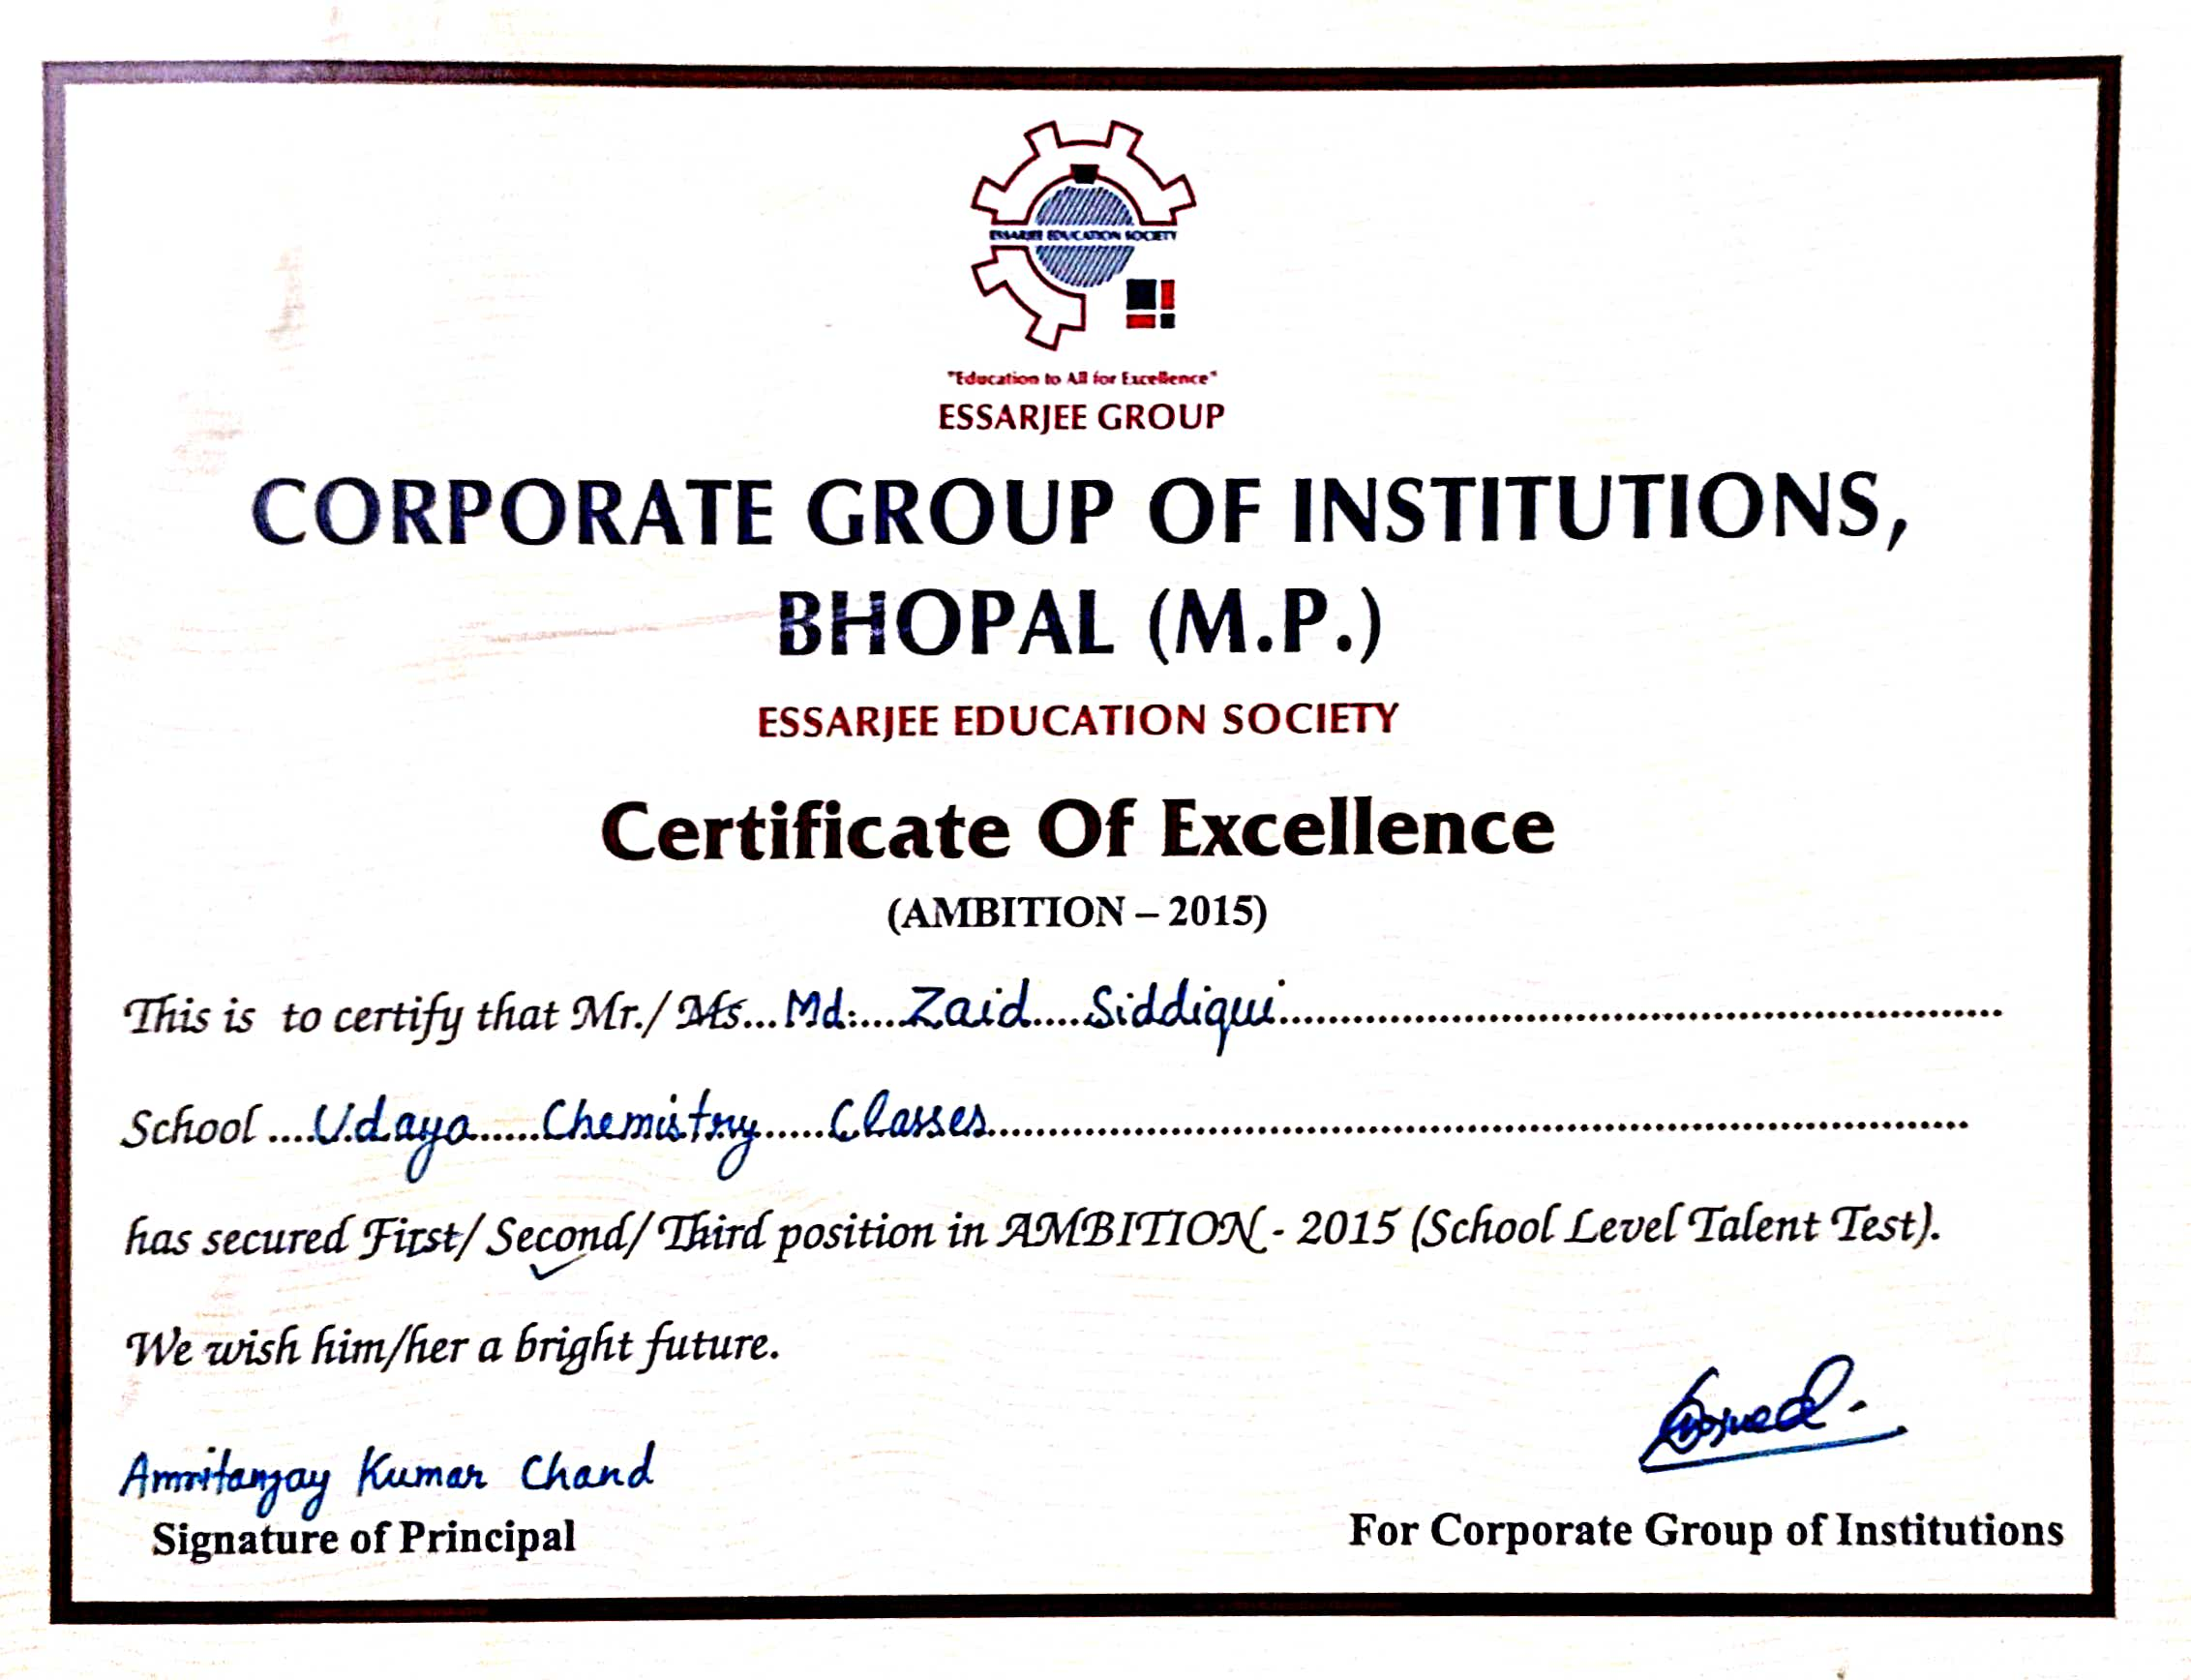 ESSARJEE EDUCATION SOCIETY
"Education to All for Excellence"
ESSARJEE GROUP
CORPORATE GROUP OF INSTITUTIONS,
BHOPAL (M.P.)
ESSARJEE EDUCATION SOCIETY
Certificate Of Excellence
(AMBITION – 2015)
This is to certify that Mr./ Ms...Md:....Zaid....Siddiqui..........
School ....Udaya......Chemistry.....Classes..........
has secured First/ Second/ Third position in AMBITION - 2015 (School Level Talent Test).
We wish him/her a bright future.
Amritanjay Kumar Chand
Signature of Principal
For Corporate Group of Institutions